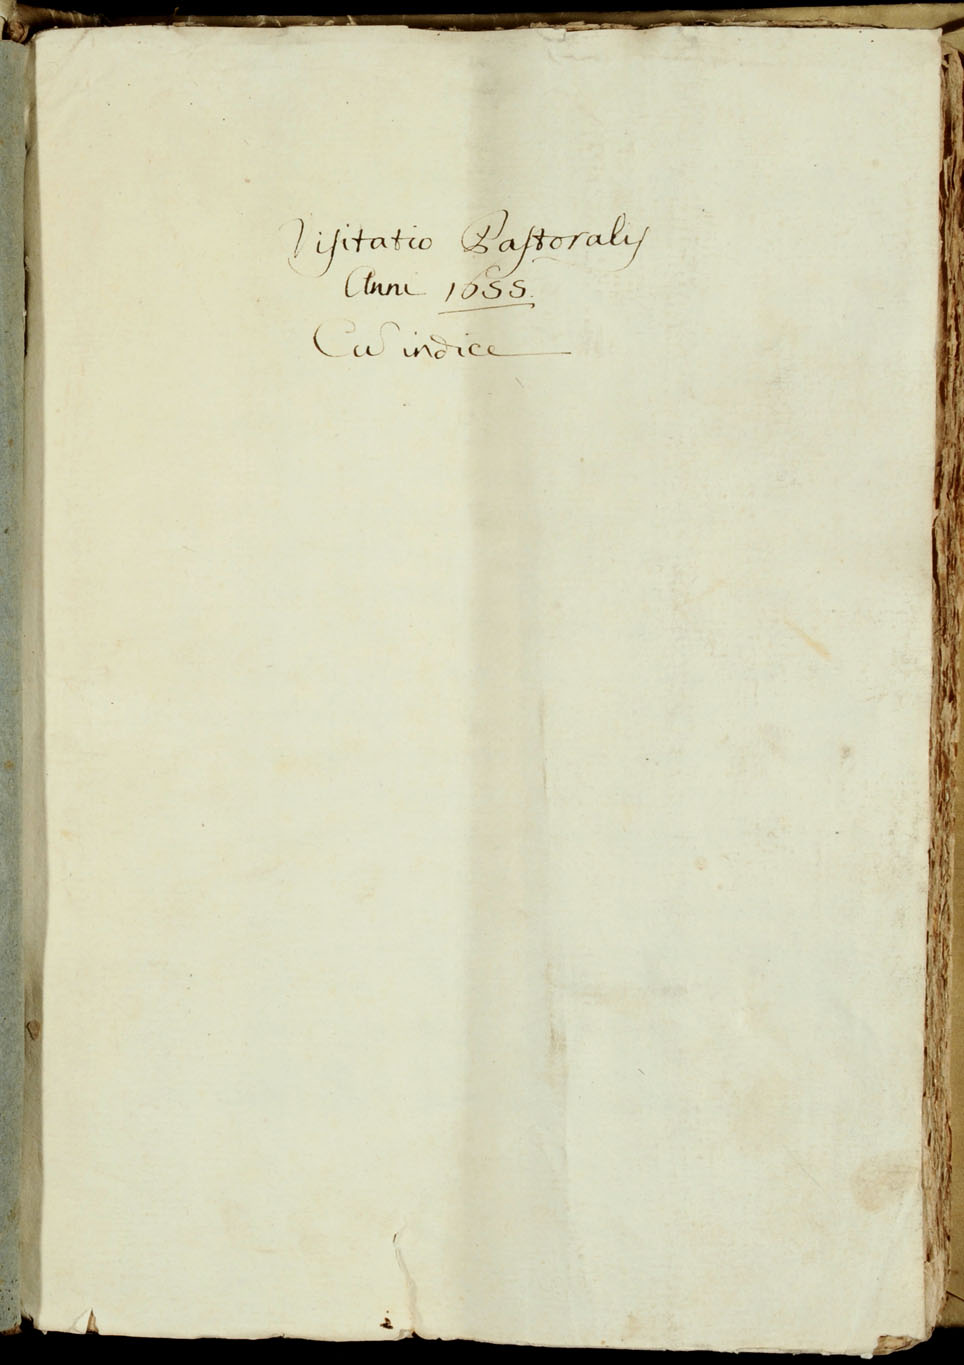 Visitatio Pastoralis
Anni 1655.
Cũ indice